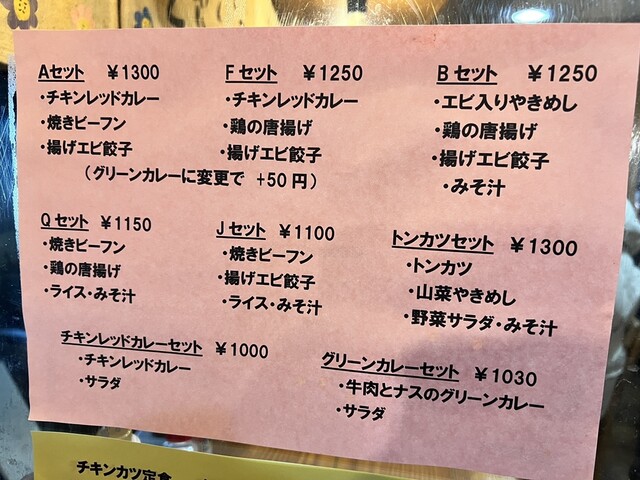 Aセット ¥1300
・チキンレッドカレー
・焼きビーフン
・揚げエビ餃子
（グリーンカレーに変更で +50円）
Fセット ¥1250
・チキンレッドカレー
・鶏の唐揚げ
・揚げエビ餃子
Bセット ¥1250
・エビ入りやきめし
・鶏の唐揚げ
・揚げエビ餃子
・みそ汁
Qセット ¥1150
・焼きビーフン
・鶏の唐揚げ
・ライス・みそ汁
Jセット ¥1100
・焼きビーフン
・揚げエビ餃子
・ライス・みそ汁
トンカツセット ¥1300
・トンカツ
・山菜やきめし
・野菜サラダ・みそ汁
チキンレッドカレーセット ¥1000
・チキンレッドカレー
・サラダ
グリーンカレーセット ¥1030
・牛肉とナスのグリーンカレー
・サラダ
チキンカツ定食